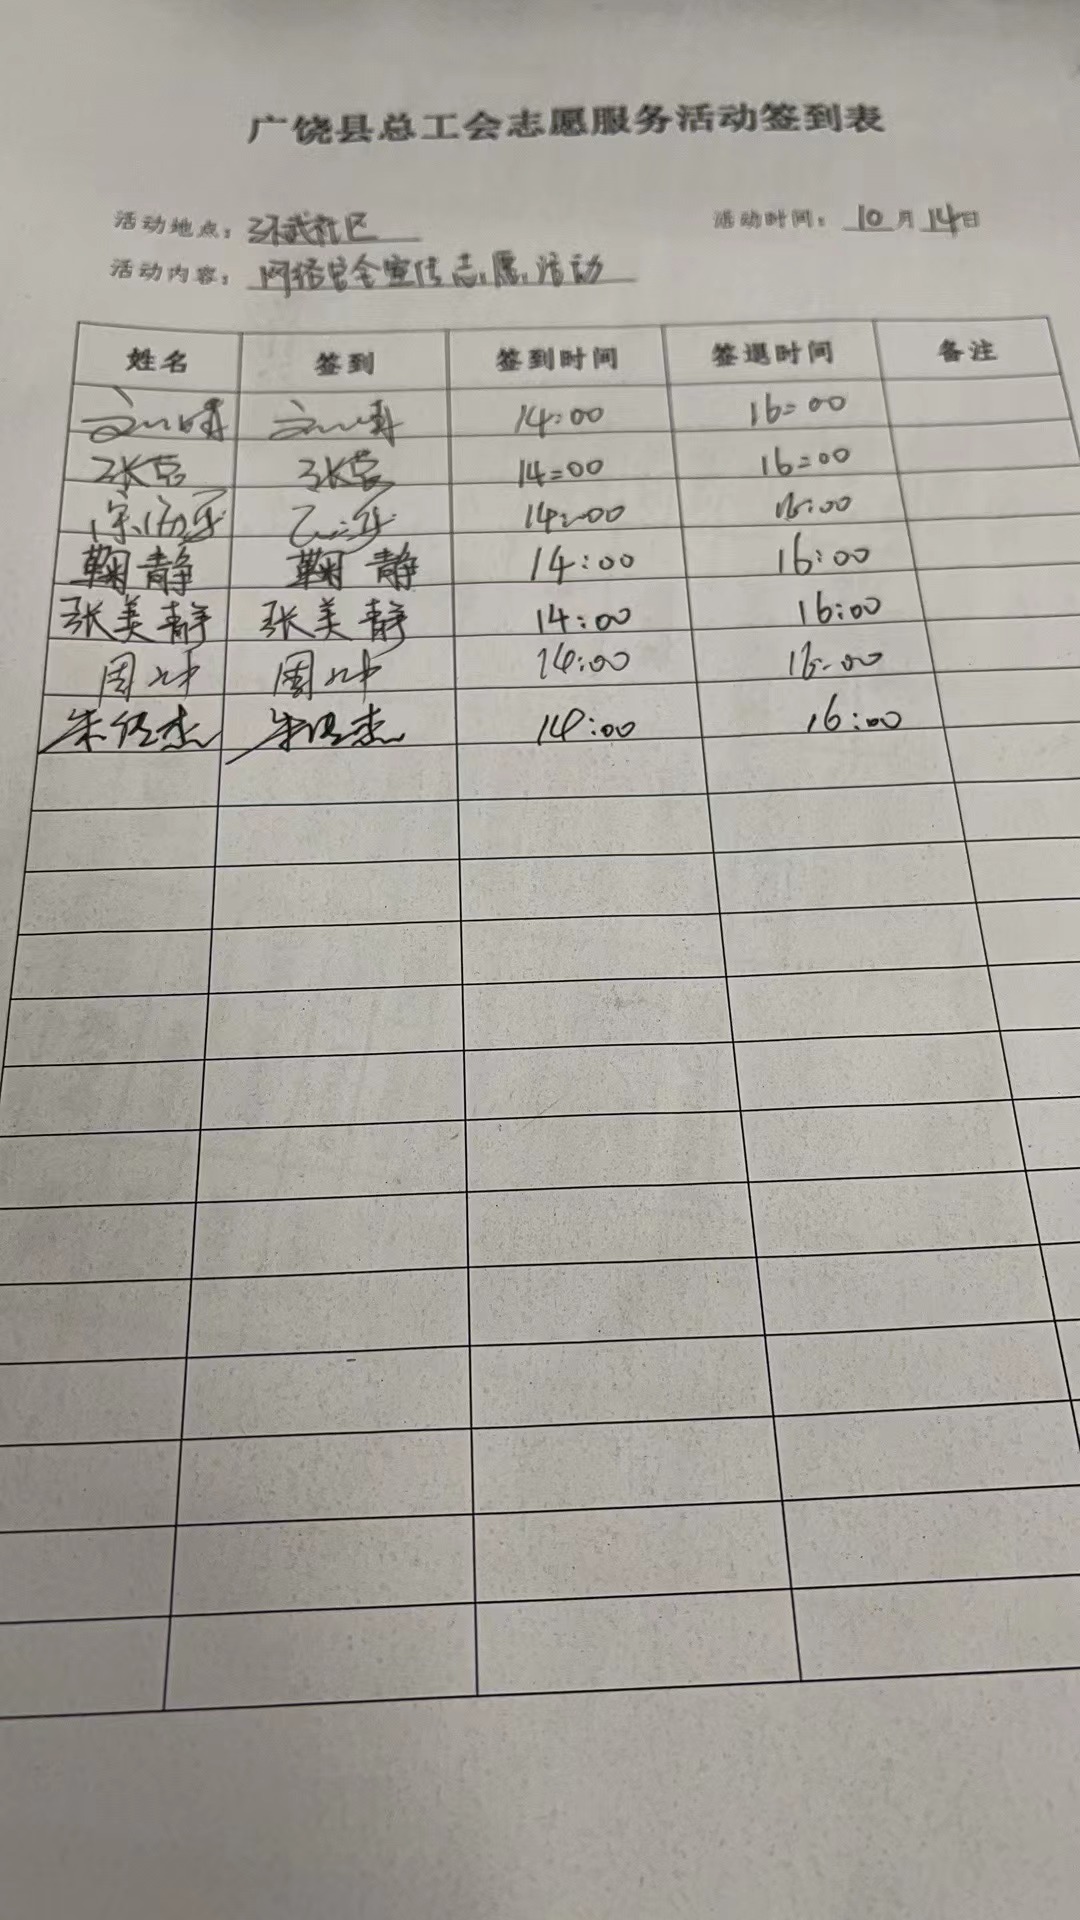 广饶县总工会志愿服务活动签到表
活动地点：孙武社区 活动时间：10月14日
活动内容：网络安全宣传志愿活动
姓名 签到 签到时间 签退时间 备注
14:00 16:00
张 张 14:00 16:00
14:00 16:00
鞠静 鞠静 14:00 16:00
张美静 张美静 14:00 16:00
周冲 周冲 14:00 16:00
朱 杰 朱 杰 14:00 16:00